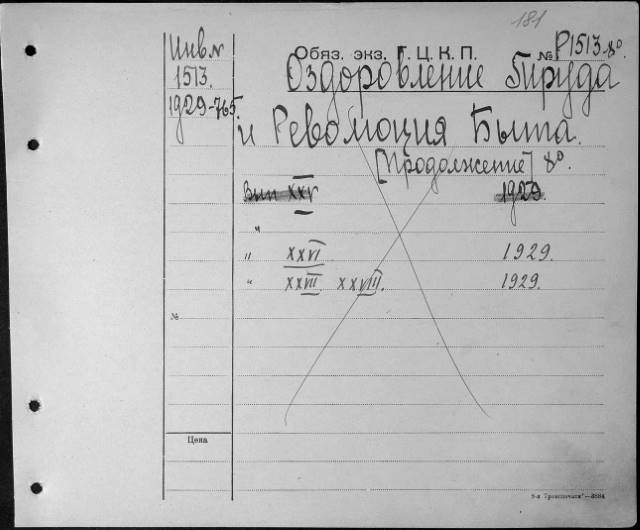 181
Инв. №
1513.
1929-765.
Обяз. экз. Г. Ц. К. П. № Р1513. 8°
Оздоровление Труда
и Революция Быта.
[Продолжение] 8°.
Вып XXV 1929.
"
" XXVI 1929.
" XXVII XXVIII. 1929.
№
Цена